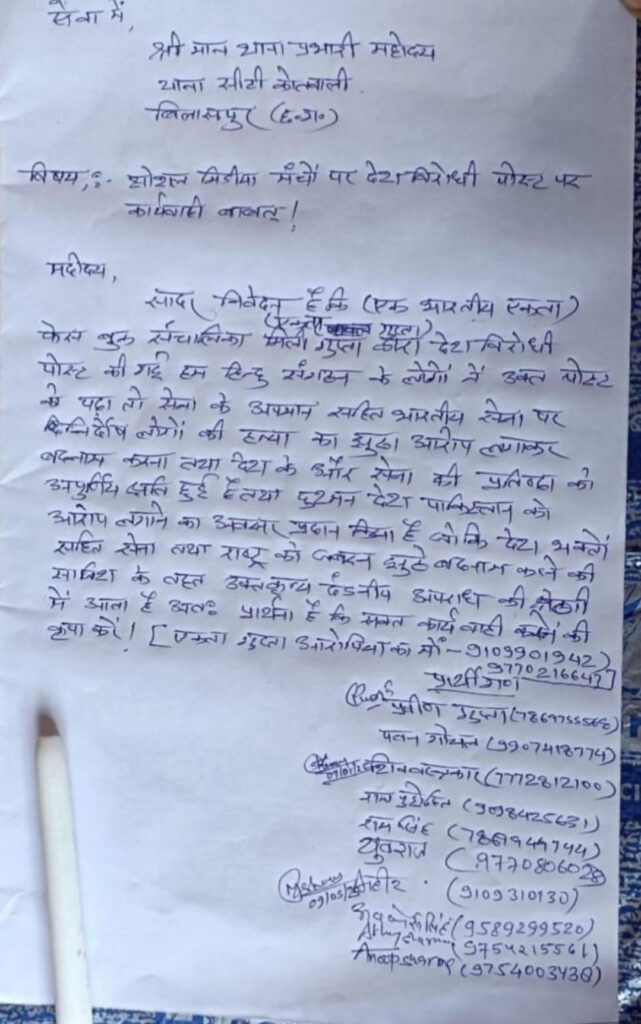 सेवा में,
श्री मान थाना प्रभारी महोदय
थाना सीटी कोतवाली
बिलासपुर (छ.ग.)
विषय,:- शोशल मिडीया मंचों पर देश विरोधी पोस्ट पर
कार्यवाही बाबत्!
महोदय,
सादर निवेदन है कि (एक भारतीय एकता)
(एकता गुप्ता)
फेस बुक संचालिका गुप्ता द्वारा देश विरोधी
पोस्ट की गई हम हिन्दु संगठन के लोगों ने उक्त पोस्ट
को पढ़ा तो सेना के अपमान सहित भारतीय सेना पर
निर्देोष लोगों की हत्या का झुठा आरोप लगाकर
बदनाम करना तथा देश के और सेना की प्रतिष्ठा को
अपुर्णिय क्षति हुई है तथा दुश्मन देश पाकिस्तान को
आरोप लगाने का अवसर प्रदान किया है जो कि देश भक्तों
सहित सेना तथा राष्ट्र को जबरन झुठे बदनाम करने की
साजिश के तहत उक्त कृत्य दंडनीय अपराध की श्रेणी
में आता है अतः प्रार्थना है कि सख्त कार्यवाही करने की
कृपा करें! [एकता गुप्ता आरोपिया का मो:- 9109901942)
9770216642]
प्रार्थीगण
प्रवीण गुप्ता (7869755568)
पवन गोयल (9907418774)
(7772812100)
(9098425631)
राम सिंह (7869944744)
युवराज (9770806028)
09/05/25 (9109310130)
(9589299520)
(9754215561)
Anoop sharma (9754003438)